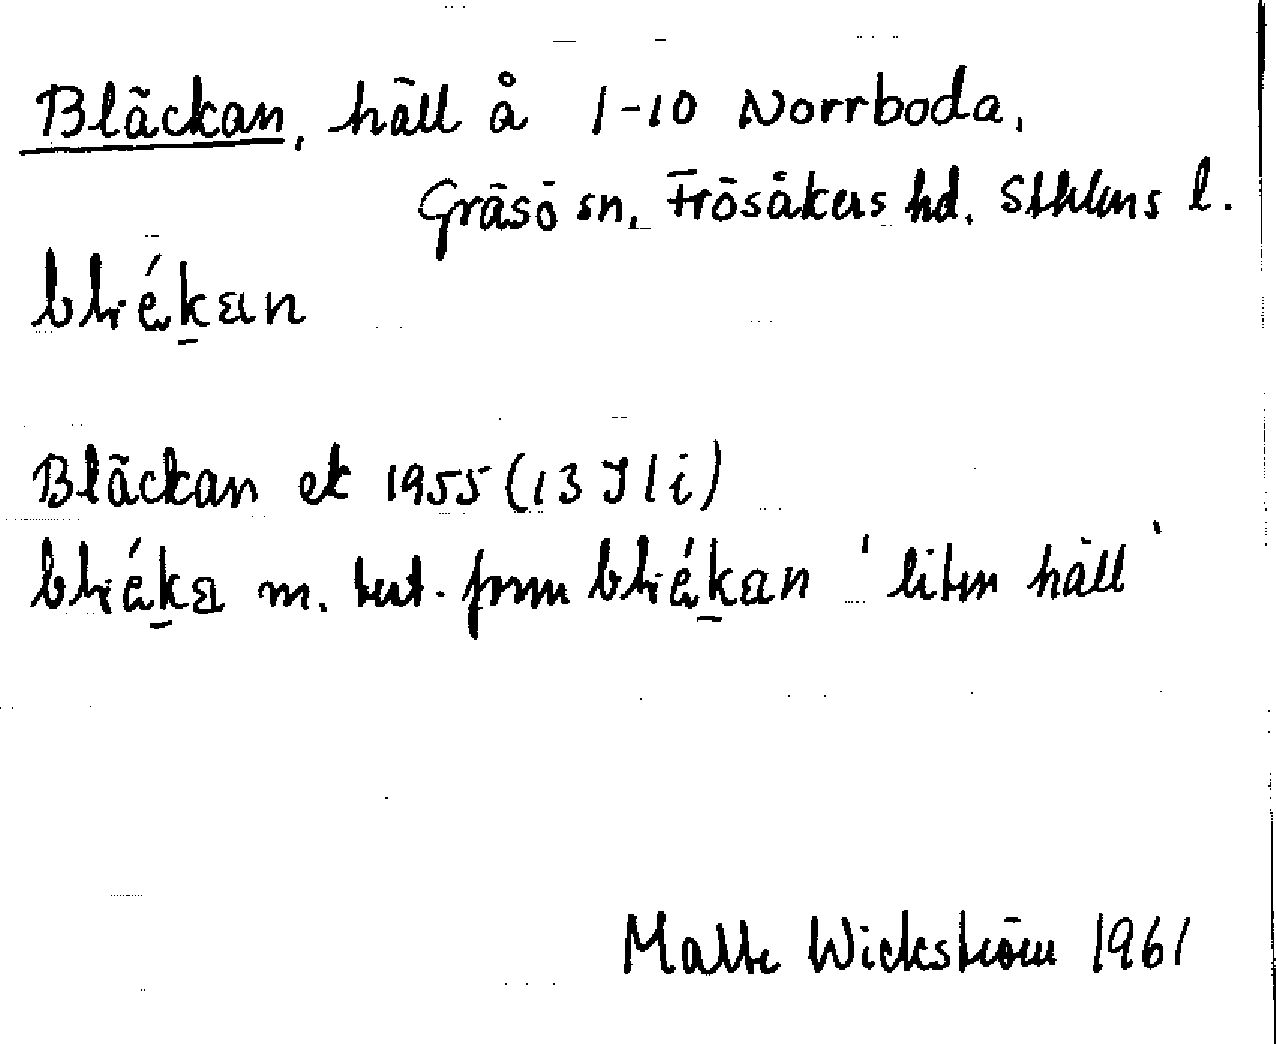 Bläckan, häll å 1-10 Norrboda,
Gräsö sn, Frösåkers hd. Sthlms l.
Bläckan ek 1955 (13 I 1 i)
m. best. form 'liten häll'
Malte Wickström 1961